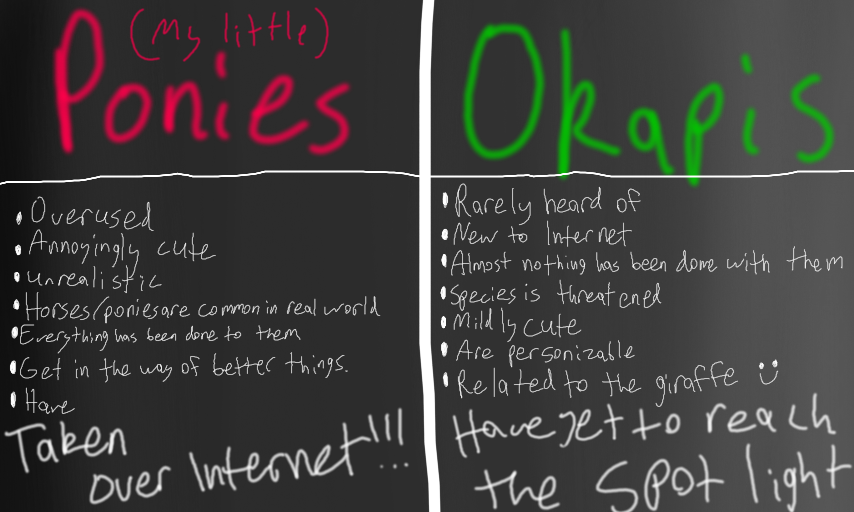 (My little)
Ponies
• Overused
• Annoyingly cute
• unrealistic
• Horses/ponies are common in real world
• Everything has been done to them
• Get in the way of better things.
• Have
Taken
over Internet!!!...
Okapis
• Rarely heard of
• New to Internet
• Almost nothing has been done with them
• Species is threatened
• Mildly cute
• Are personizable
• Related to the giraffe :)
Have yet to reach
the spot light